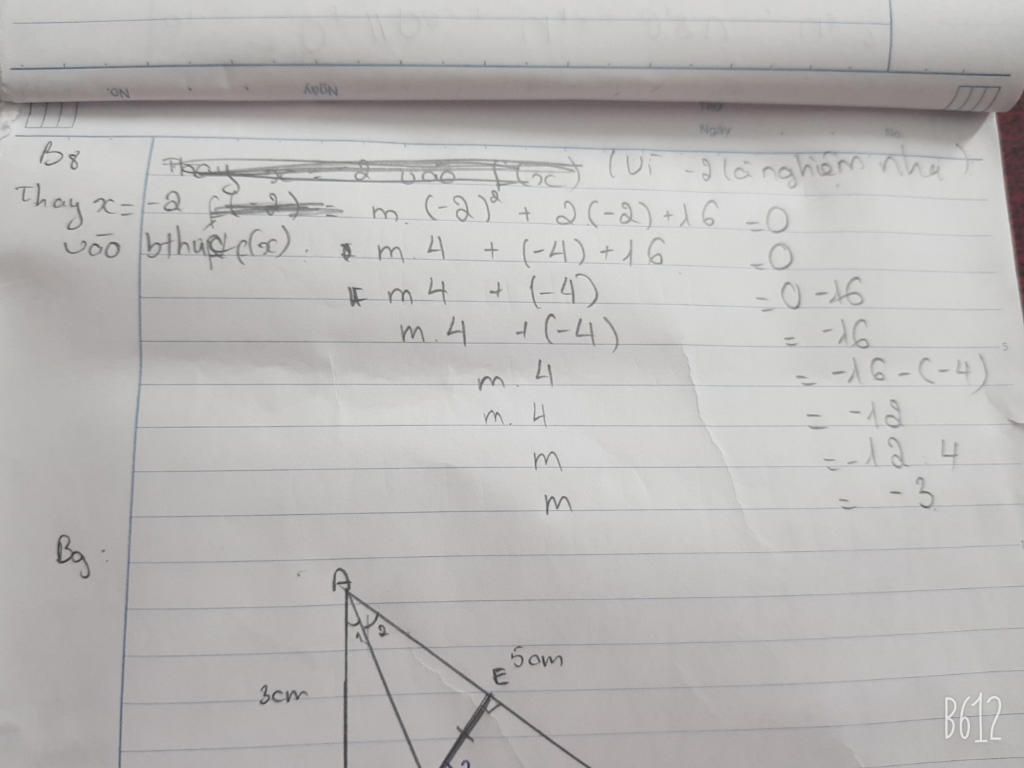 No.
Ngày
Ngày
No.
B8
Thay x = -2 vào f(x) (Vì -2 là nghiệm nha)
Thay x = -2 f(-2) = m. (-2)² + 2(-2) + 16 = 0
vào bthức f(x). m. 4 + (-4) + 16 = 0
m 4 + (-4) = 0 - 16
m. 4 + (-4) = -16
m. 4 = -16 - (-4)
m. 4 = -12
m = -12 . 4
m = -3
B9:
A
1 2
E 5cm
3cm
2
B612